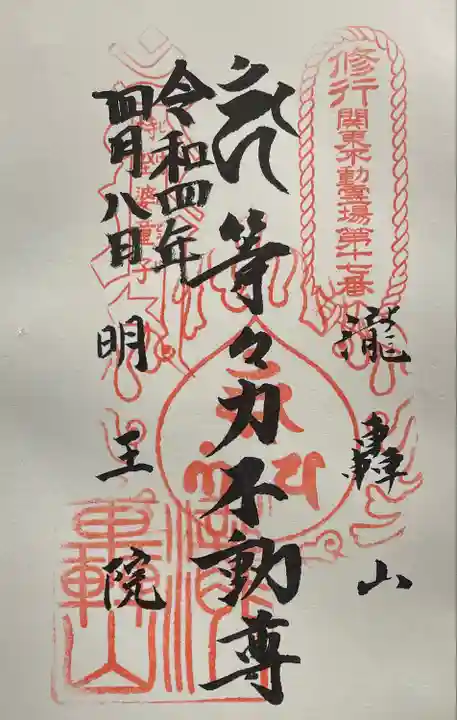 修行
関東不動霊場第十七番
瀧轟山
奉拝
等々力不動尊
令和四年
四月八日
明王院